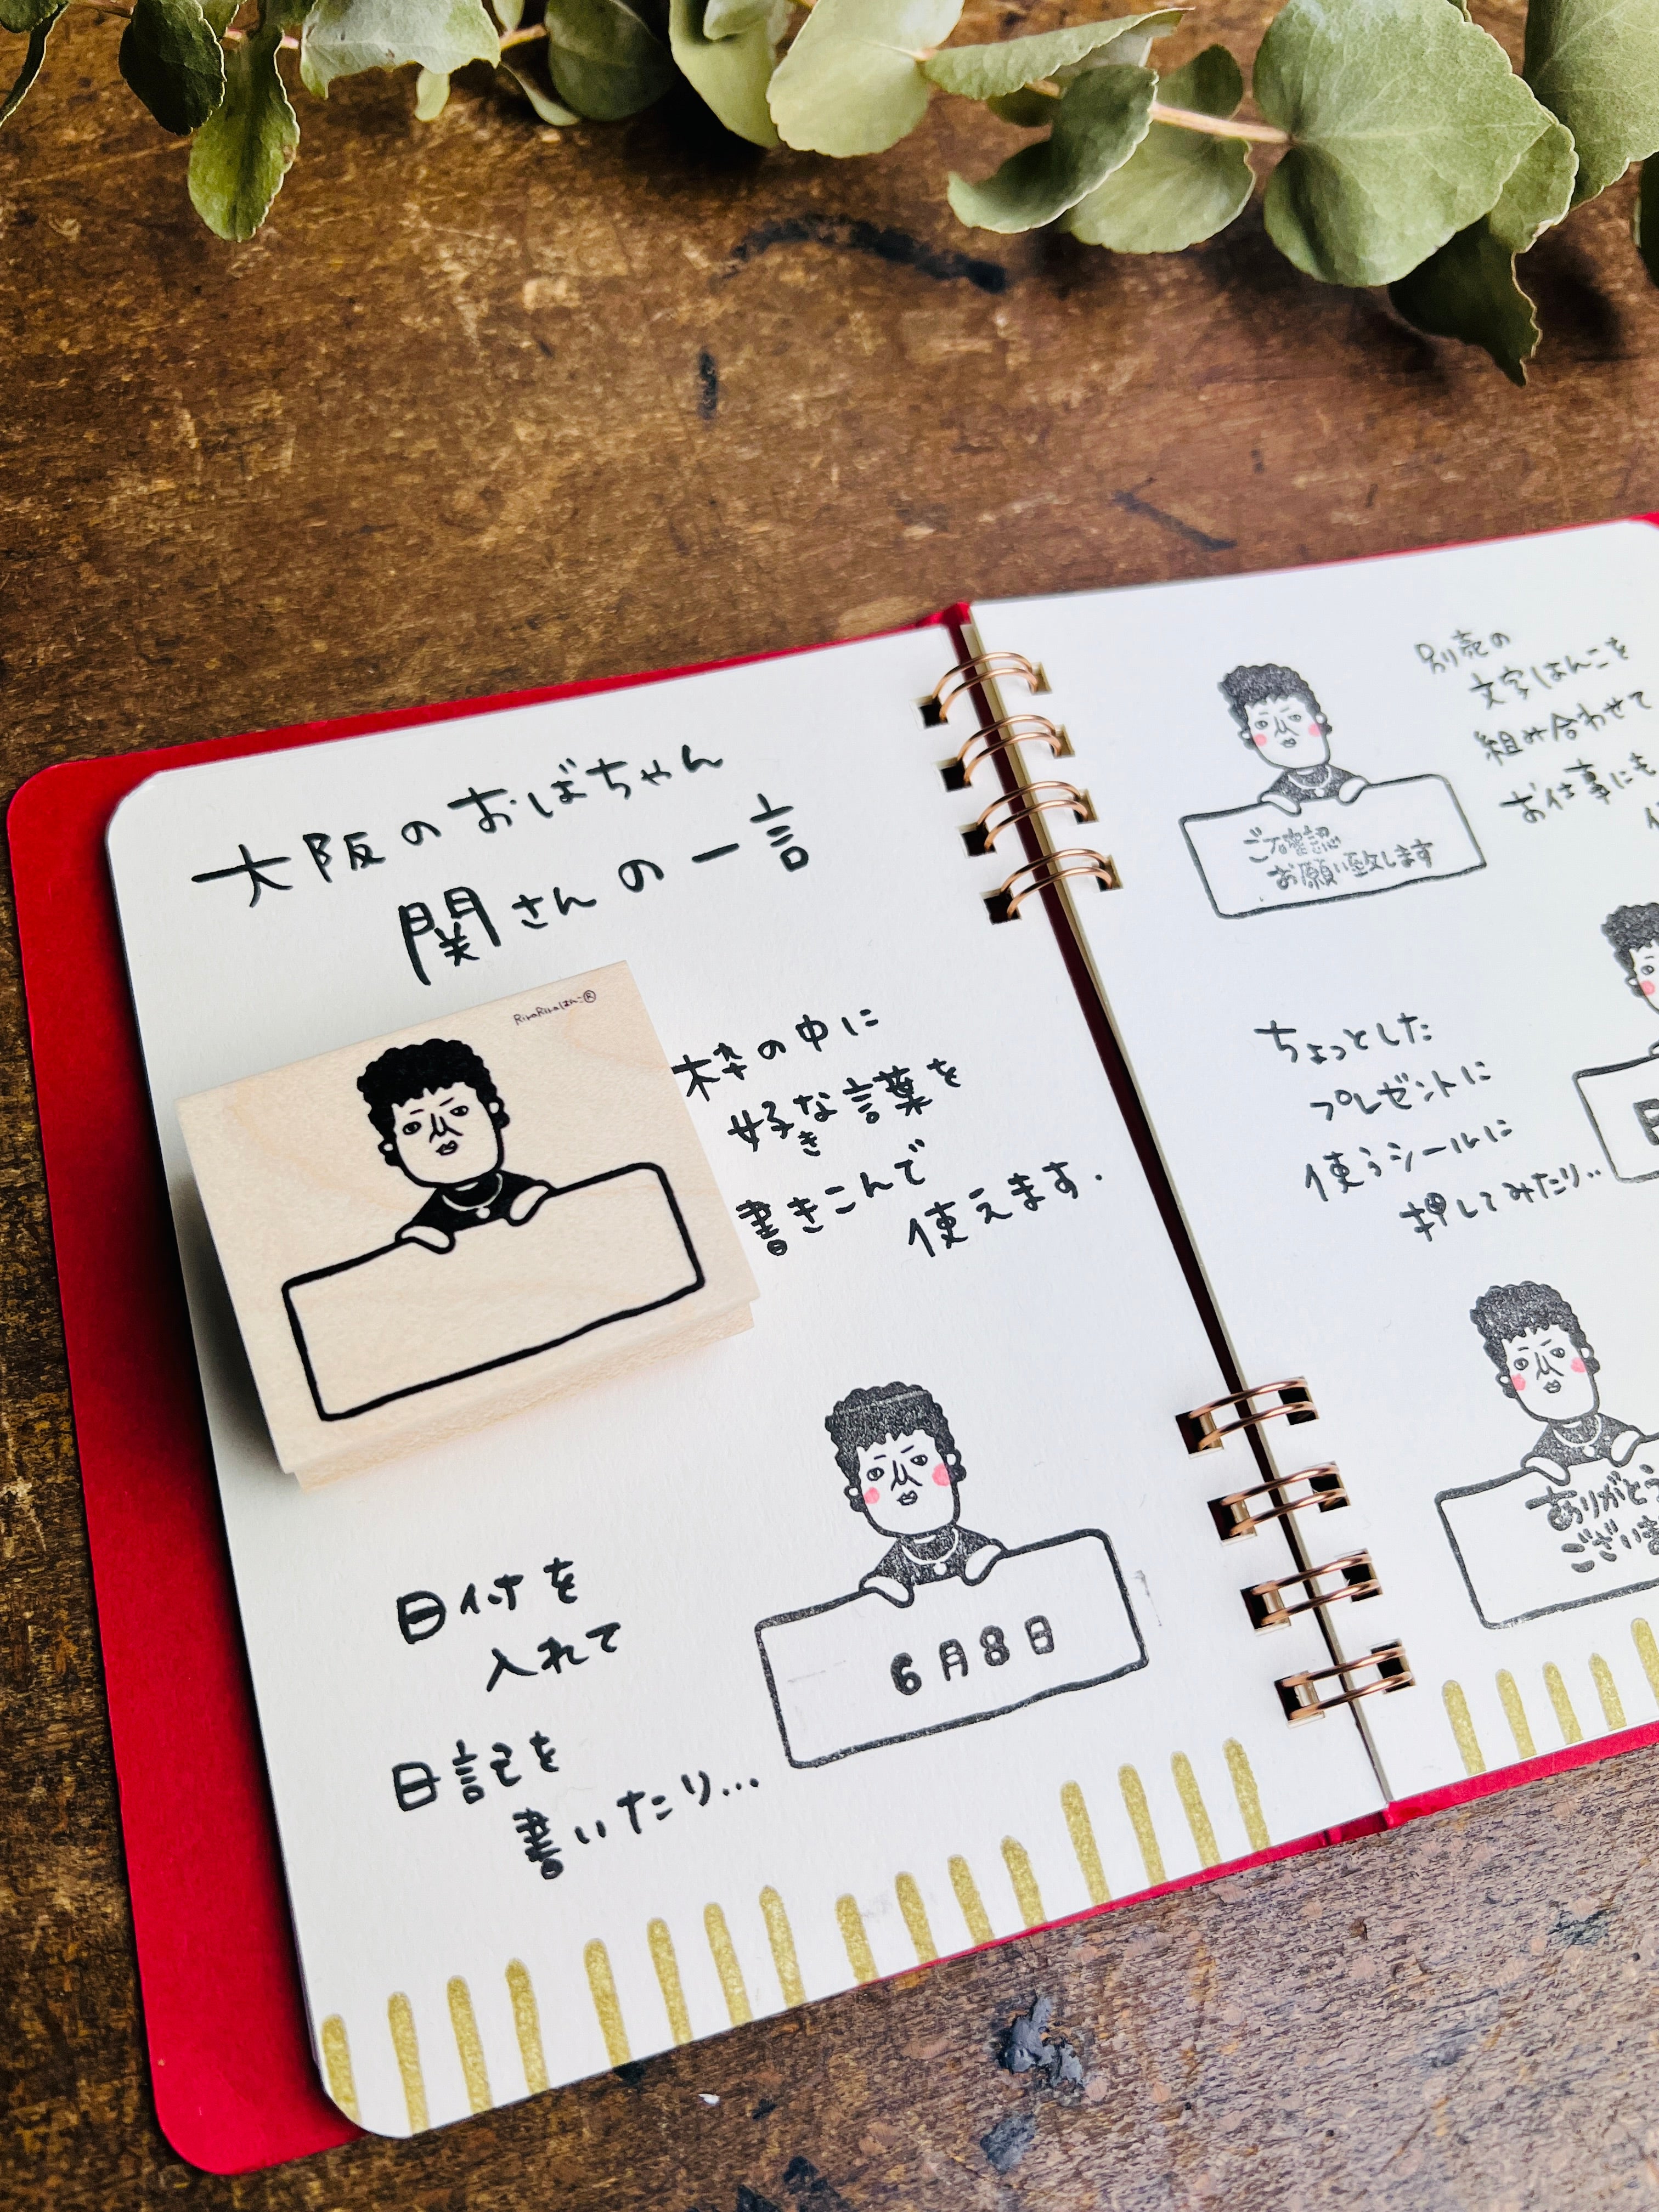 大阪のおばちゃん
関さんの一言
RiraRiraはんこ®
枠の中に
好きな言葉を
書きこんで
使えます.
日付を
入れて
日記を
書いたり...
6月8日
別売の
文字はんこを
組み合わせて
お仕事にも
ご確認
お願い致します
ちょっとした
プレゼントに
使うシールに
押してみたり..
ありがとう
ございま